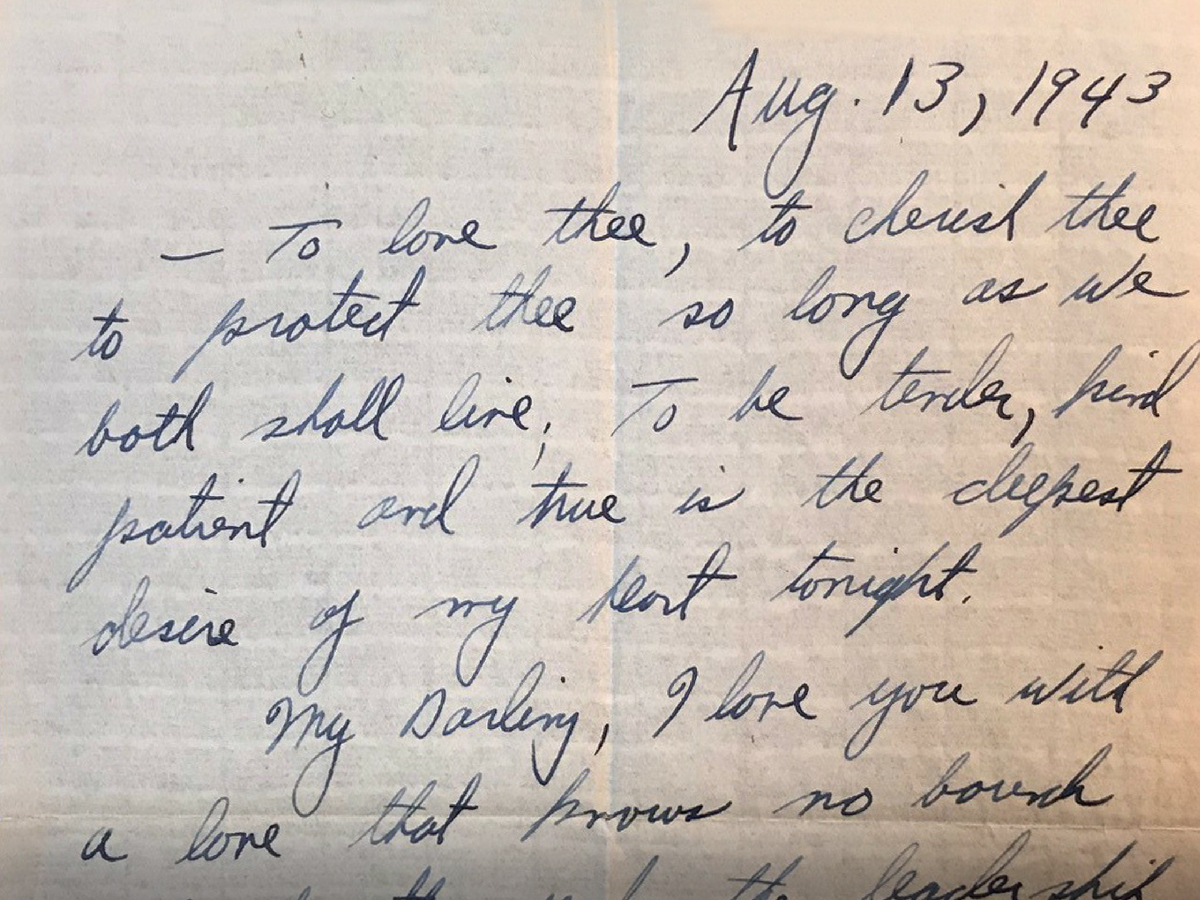 Aug. 13, 1943
— To love thee, to cherish thee
to protect thee so long as we
both shall live; To be tender, kind
patient and true is the deepest
desire of my heart tonight.
My Darling, I love you with
a love that knows no bounds
the leadership